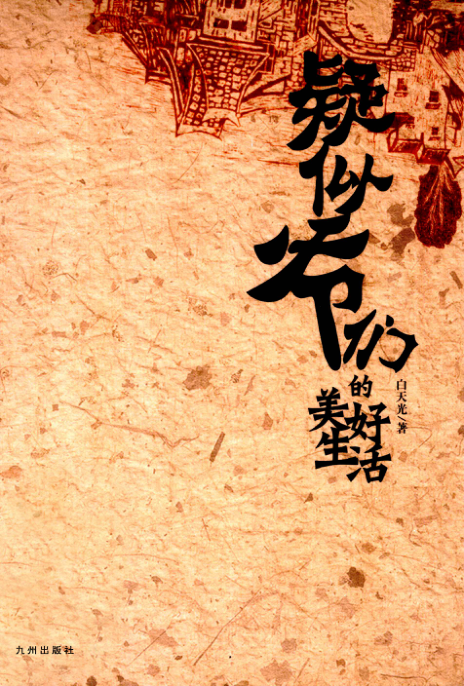 疑似爷们
的
美好
生活
白天光/著
九州出版社